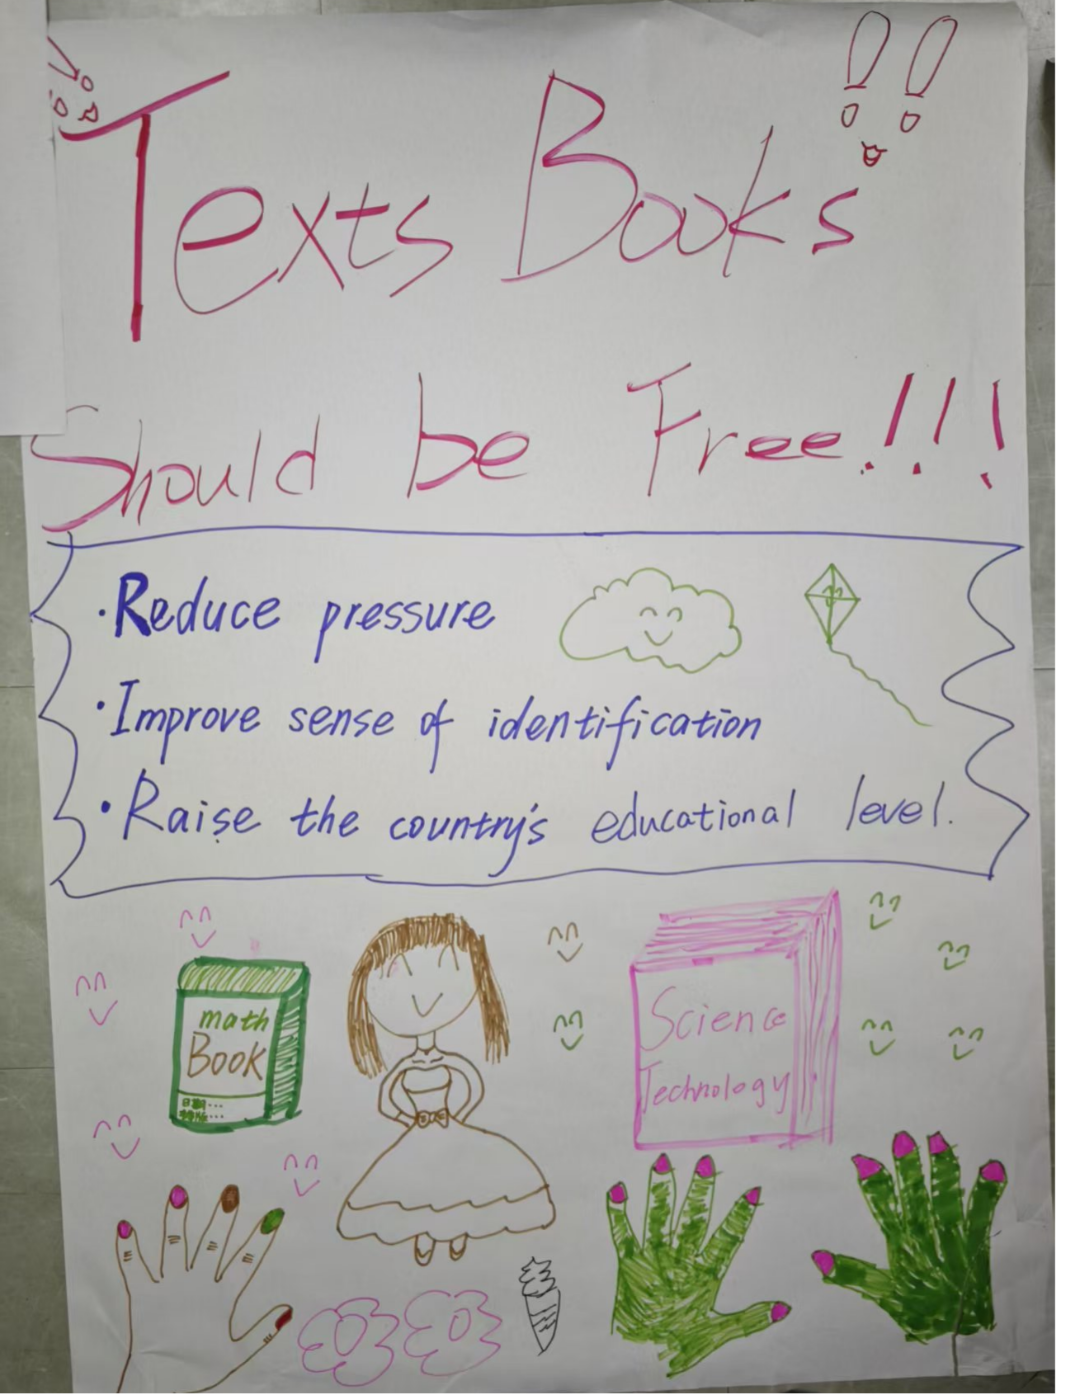 Texts Books
Should be Free!!!
·Reduce pressure
·Improve sense of identification
·Raise the country's educational level.
math
Book
Science
Technology